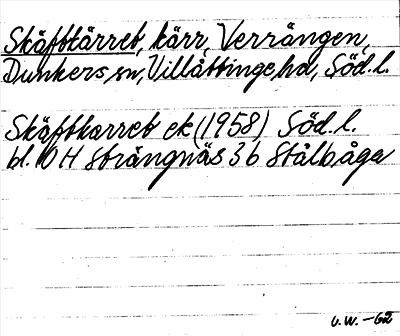 Skäftkärret, kärr, Verrängen,
Dunkers sn, Villåttinge hd, Söd.l.
Skäftkarret ek (1958) Söd.l.
bl. 10 H Strängnäs 3 b Stålbåga
U.W. -62